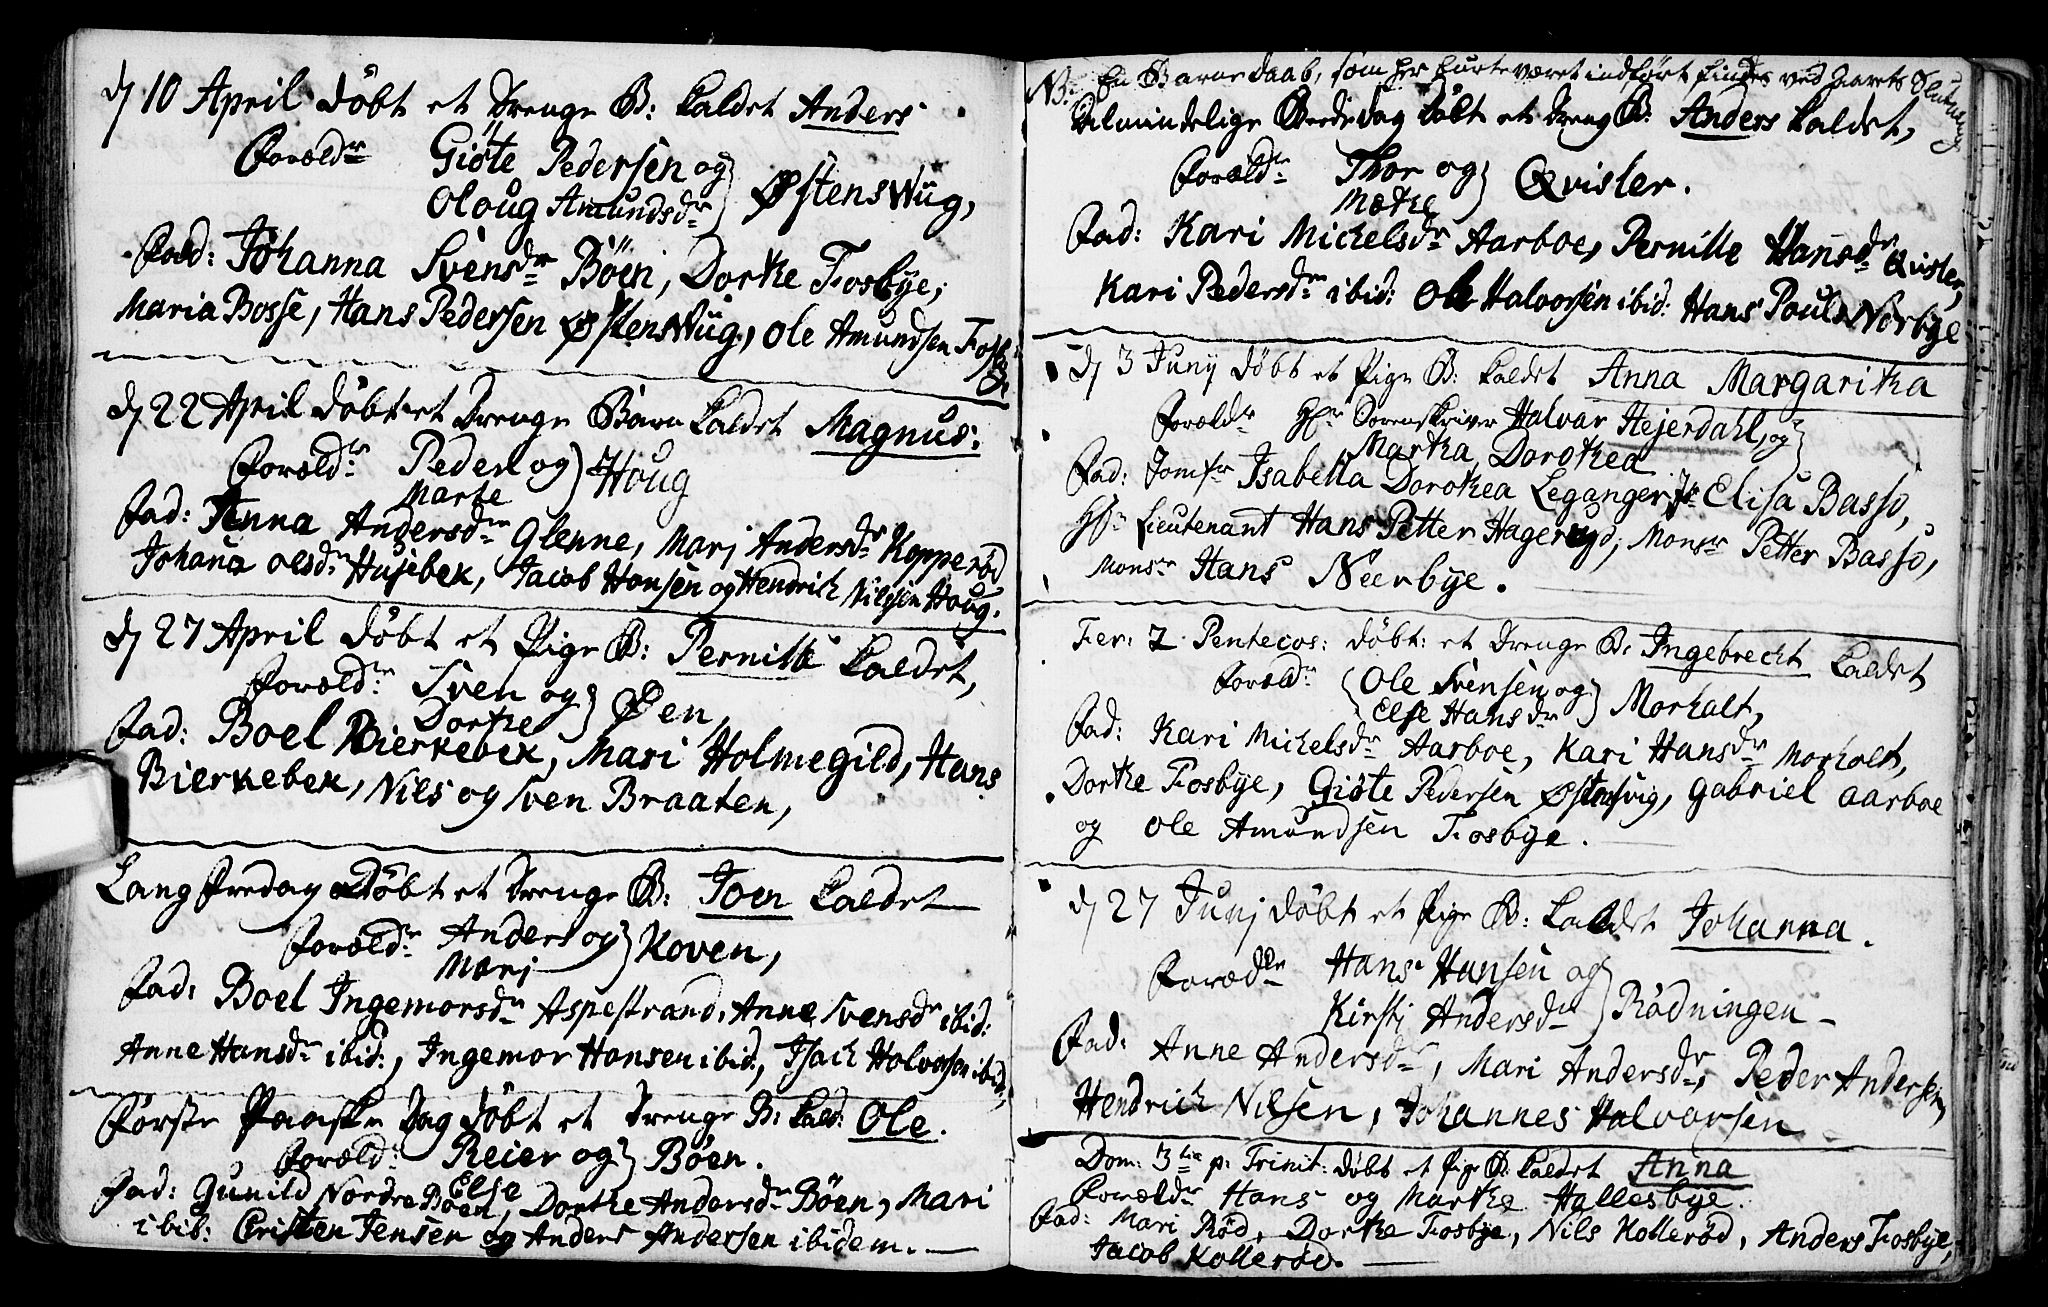 d 10 April döbt et Drenge B: kaldet Anders.
Foreldr Giöte Pedersen og
Oloug Amundsdr } Østenswiig,
Fad: Johanna Svensdr Böen, Dorthe Fosbye,
Maria Bosse, Hans Pedersen Østenswiig, Ole Amundsen Fosbye
d 22 April döbt et Drenge Barn kaldet Magnus.
Foreldr: Peder og
Marte } Houg
Fad: Anna Andersdr Glenne, Marj Andersdr Kopperöd
Johana Olsdr Husebek, Jacob Hansen og Hendrich Nilssen Houg.
d 27 April döbt et Pige B: Pernille kaldet,
Foreldr: Sven og
Dorthe } Øen,
Fad: Boel Bierkebek, Mari Holmegild, Hans
Bierkebek, Nils og Sven Braaten,
Lang Fredag döbt et Drenge B: Joen kaldet
Foreldr: Anders og
Marj } Koven,
Fad: Boel Ingemorsdr Aspestrand, Anne Svensdr ibid:
Anne Hansdr ibid:, Ingemor Hansen ibid:, Isach Halvorsen ibid:,
Förste Paaske Dag döbt et Drenge B: kald: Ole.
Foreld: Reier og
Else } Böen.
Fad: Gunild Nordre Böen, Dorthe Andersdr Böen, Mari
ibib: Christen Jensen og Anders Andersen ibidem.
NB: En Barne Daab, som her burte været indfört findes ved Aarets Slutning
Almindelige Bede Dag döbt et Dreng B: Anders kaldet,
Foreldr Thor og
Mæthe } Qvisler.
Fad: Kari Michelsdr Aarboe, Pernille Hansdr Qvisler,
Kari Pedersdr ibid: Ole Halvorsen ibid: Hans Pouls Nörbye
d 3 Junij döbt et Pige B: kaldet Anna Margaritha
Foreldr Hr Sorenskriver Halvar Hejerdahl, og
Martha Dorothea
Fad: Jomfr Isabella Dorothea Leganger, Jfr Elisa Basso,
Hr Lieutenant Hans Petter Hageryd, Monsr Petter Basso,
Monsr Hans Neerbye.
Fer: 2 Pentecos: döbt: et Drenge B: Ingebrecht kaldet
Foreldr (Ole Svensen og
Else Hansdr } Morhalt,
Fad: Kari Michelsdr Aarboe, Kari Hansdr Morhalt,
Dorthe Fosbye, Giöte Pedersen Østensvig, Gabriel Aarboe
og Ole Amundsen Fosbye.
d 27 Junj döbt et Pige B: kaldet Johanna.
Foreldr Hans Hansen og
Kirstj Andersdr } Rödningen
Fad: Anne Andersdr, Mari Andersdr, Peder Andersen,
Hendrich Nilsen, Johannes Halvorsen
Dom: 3tia p: Trinit: döbt et Pige B: kaldet Anna
Foreldr Hans og Marthe Hallesbye.
Fad: Mari Röd, Dorthe Fosbye, Nils Kolleröd, Anders Fosbye,
Jacob Kolleröd.